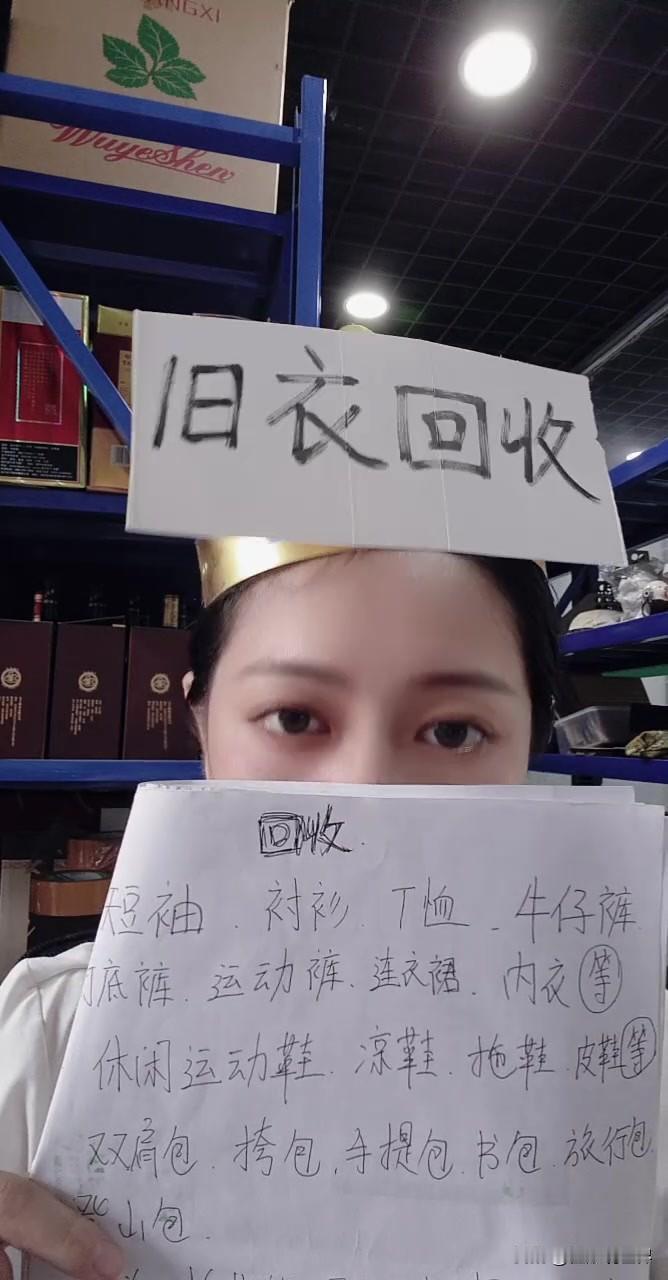 NGXI
WuyeShen
旧衣回收
回收.
短袖.衬衫.T恤-牛仔裤
打底裤.运动裤.连衣裙.内衣等
休闲运动鞋.凉鞋.拖鞋.皮鞋等
双肩包.挎包.手提包.书包.旅行包
登山包.